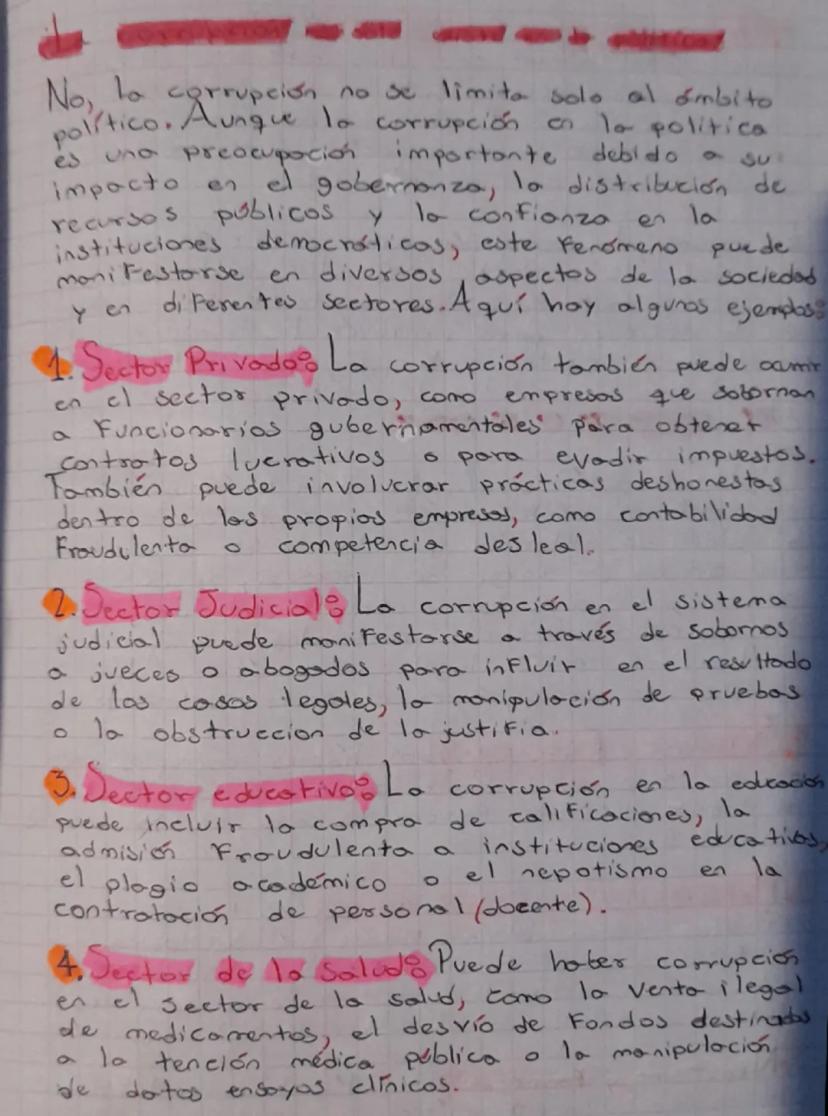 No, la corrupción no se limita solo al ámbito
político. Aunque la corrupción en la política
es una preocupación importante debido a su
impacto en el gobernanza, la distribución de
recursos públicos y la confianza en la
instituciones democráticas, este fenómeno puede
manifestarse en diversos aspectos de la sociedad
y en diferentes sectores. Aquí hay algunos ejemplos:
1. Sector Privado: La corrupción también puede ocurrir
en el sector privado, como empresas que sobornan
a funcionarios gubernamentales para obtener
contratos lucrativos o para evadir impuestos.
También puede involucrar prácticas deshonestas
dentro de las propias empresas, como contabilidad
fraudulenta o competencia desleal.
2. Sector Judicial: La corrupción en el sistema
judicial puede manifestarse a través de sobornos
a jueces o abogados para influir en el resultado
de las casos legales, la manipulación de pruebas
o la obstruccion de la justifia.
3. Sector educativo: La corrupción en la educación
puede incluir la compra de calificaciones, la
admisión fraudulenta a instituciones educativas,
el plagio académico o el nepotismo en la
contratación de personal (docente).
4. Sector de la salud: Puede haber corrupción
en el sector de la salud, como la venta ilegal
de medicamentos, el desvío de fondos destinados
a la tención médica pública o la manipulación
de datos ensayos clínicos.